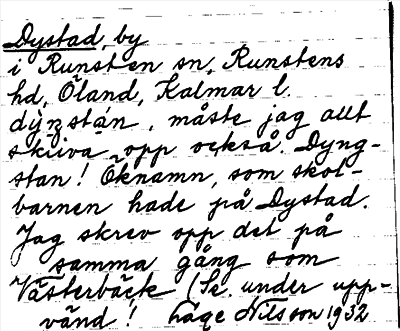 Dystad, by
i Runsten sn, Runstens
hd, Öland, Kalmar l.
dýŋstán, måste jag allt
skriva opp också. Dyng-
stan! Öknamn, som skol-
barnen hade på Dystad.
Jag skrev opp det på
samma gång som
Västerbäck (Se. under upp-
vänd! Låge Nilsson 1932